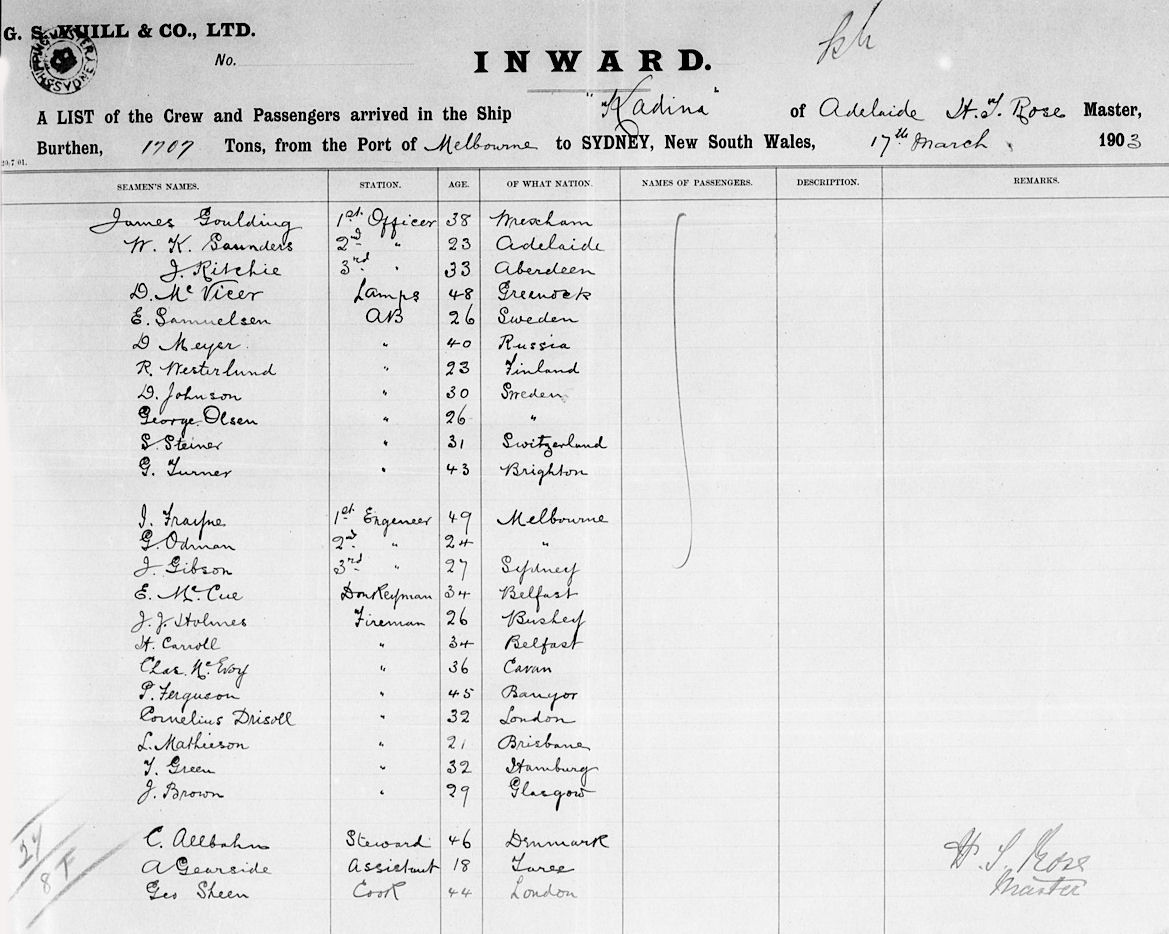 G. S. YUILL & CO., LTD.
SHIPPING MASTER'S SYDNEY
No.
INWARD.
A LIST of the Crew and Passengers arrived in the Ship "Kadina" of Adelaide H. T. Rose Master,
Burthen, 1707 Tons, from the Port of Melbourne to SYDNEY, New South Wales, 17th March 1903
SEAMEN'S NAMES. STATION. AGE. OF WHAT NATION. NAMES OF PASSENGERS. DESCRIPTION. REMARKS.
James Goulding 1st Officer 38 Wrexham
W. K. Saunders 2nd " 23 Adelaide
J. Ritchie 3rd " 33 Aberdeen
D. Mc Vicer Lamps 48 Greenock
E. Samuelsen AB 26 Sweden
D Meyer " 40 Russia
R. Westerlund " 23 Finland
D. Johnson " 30 Sweden
George Olsen " 26 "
S. Steiner " 31 Switzerland
G. Turner " 43 Brighton
J. Frayne 1st Engeneer 49 Melbourne
G. Odman 2nd " 24 "
J. Gibson 3rd " 27 Sydney
E. Mc Cue Donkeyman 34 Belfast
J. J. Holmes Fireman 26 Bushey
H. Carroll " 34 Belfast
Chas. Mc Evoy " 36 Cavan
P. Ferguson " 45 Bangor
Cornelius Drisoll " 32 London
L. Mathieson " 21 Brisbane
T. Green " 32 Hamburg
J. Brown " 29 Glasgow
C. Allbahn Steward 46 Denmark
A Gearside Assistant 18 Taree
Geo Sheen Cook 44 London
H. T. Rose
Master